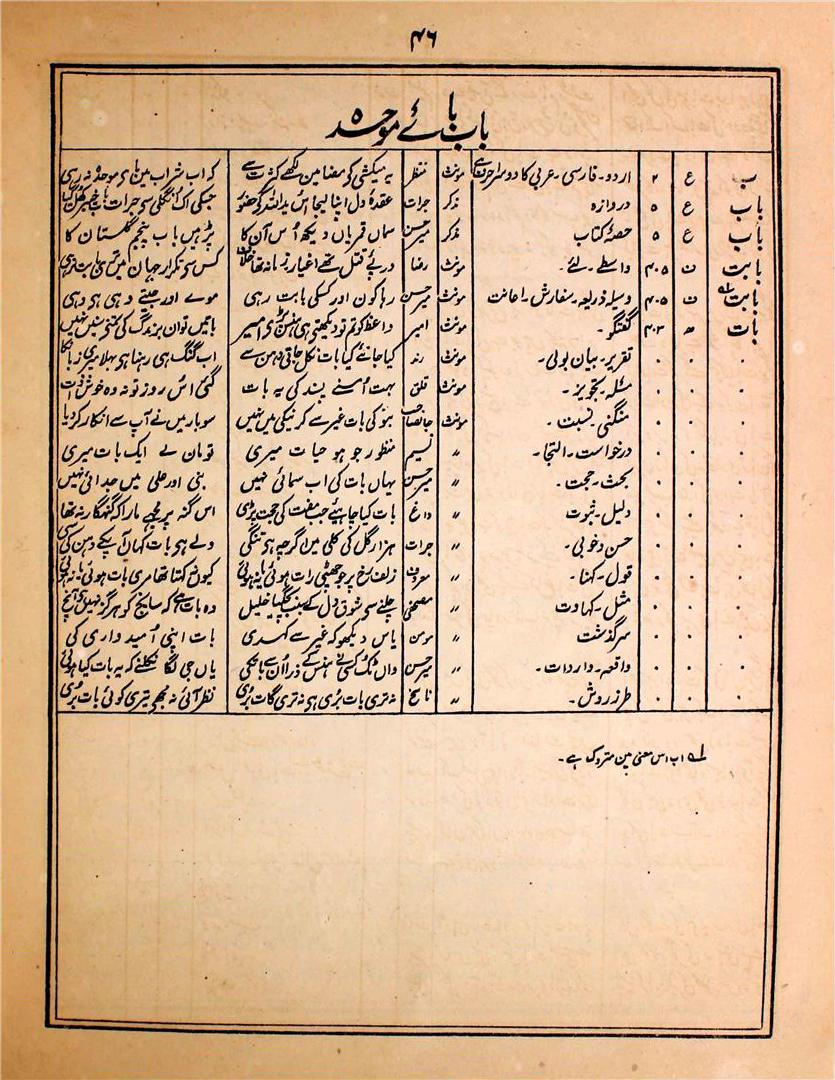 ۴۶
باب بائے موحدہ
ب ع ۲ اردو۔ فارسی۔ عربی کا دوسرا حرف ہے مونث منظر یہ میکشی کے مضامین لکھے کثرت سے کہ اب شراب میں بائے موحدہ نہ رہی
باب ع ۵ دروازہ مذکر جرات عقدۂ دل اپنا لیجا اس یداللہ کے حضور جسکی اک انگلی سے جرات باب خیبر کھل گیا
باب ع ۵ حصۂ کتاب مذکر میرحسن سماں قمریاں دیکھ اُس آن کا پڑھیں باب پنجم گلستان کا
بابت ف ۴۰۵ واسطے۔ لئے۔ مونث رضا درپئے قتل تھے اغیار زمانہ تھا خلاف کس سے تکرار جہان میں تری بابت نرہی
بابت ف ۴۰۵ وسیلہ ذریعہ۔ سفارش۔ اعانت مونث میرحسن رہا کون اور کسکی بابت رہی موے اور جیتے وہی ہی وہی
بات ھ ۴۰۳ گفتگو۔ مونث امیر واعظ کو تم تو دیکھتے ہی ہنس پڑے امیر باتیں تو ان بزرگ کی سنی نہیں
۰ ۰ ۰ تقریر۔ بیان بولی۔ مونث رند کیا جانئے کیا بات نکل جاتی دہن سے اب گنگ ہی رہنا ہی بھلا میری زباں کا
۰ ۰ ۰ مسئلہ۔ تجویز۔ مونث قلق بہت اُسنے پسند کی یہ بات گئی اُس روز تو نہ وہ خوش ذات
۰ ۰ ۰ منگنی۔ نسبت۔ مونث جانصاحب کی بات غیر سے کر نیکی میں نہیں سوبار میں نے آپ سے انکار کر دیا
۰ ۰ ۰ درخواست۔ التجا۔ ״ نسیم منظور جو ہو حیات میری تو مان لے ایک بات میری
۰ ۰ ۰ بحث۔ حجت۔ ״ میرحسن یہاں بات کی اب سمائی نہیں بنی اور علی میں جدائی نہیں
۰ ۰ ۰ دلیل۔ ثبوت ״ داغ بات کیا چاہیئے جب مفت کی حجت ٹہری اس گنہ پر مجھے مارا کہ گنہگار نہ تھا
۰ ۰ ۰ حسن و خوبی۔ ״ جرات ہزار گل کی کلی میں اگرچہ ہے تنگی ولے ہی بات کہاں آپکے دہن کی سی
۰ ۰ ۰ قول۔ کہنا۔ ״ معروف زلف رخ پر جو چھٹی رات ہوئی یا نہوئی کیوں کہتا تھا مری بات ہوئی یا نہوئی
۰ ۰ ۰ مثل۔ کہاوت ״ مصحفی وہ بات ہے کہ سانچ کو ہرگز نہیں ہے آنچ
۰ ۰ ۰ سرگذشت ״ مومن یاس دیکھو کہ غیر سے کہدی بات اپنی اُمیدواری کی
۰ ۰ ۰ واقعہ۔ واردات۔ ״ میرحسن واں ٹک کسی نے ہنس کے ذرا اُن سے بات کی یاں جی لگا نکلنے کہ یہ بات کیا ہوئی
۰ ۰ ۰ طرز روش۔ ״ ناسخ نہ تری بات بُری ہی نہ تری گات بُری نظر آئی نہ مجھے تیری کوئی بات بُری
لہ اب اس معنی مین متروک ہے۔